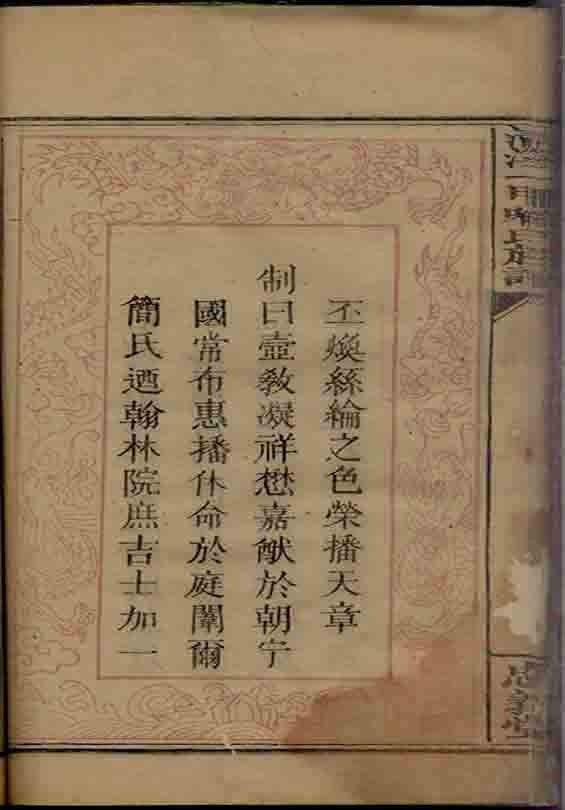 丕煥絲綸之色榮播天章
制曰壼敎凝祥懋嘉猷於朝宁
國常布惠播休命於庭闈爾
簡氏迺翰林院庶吉士加一